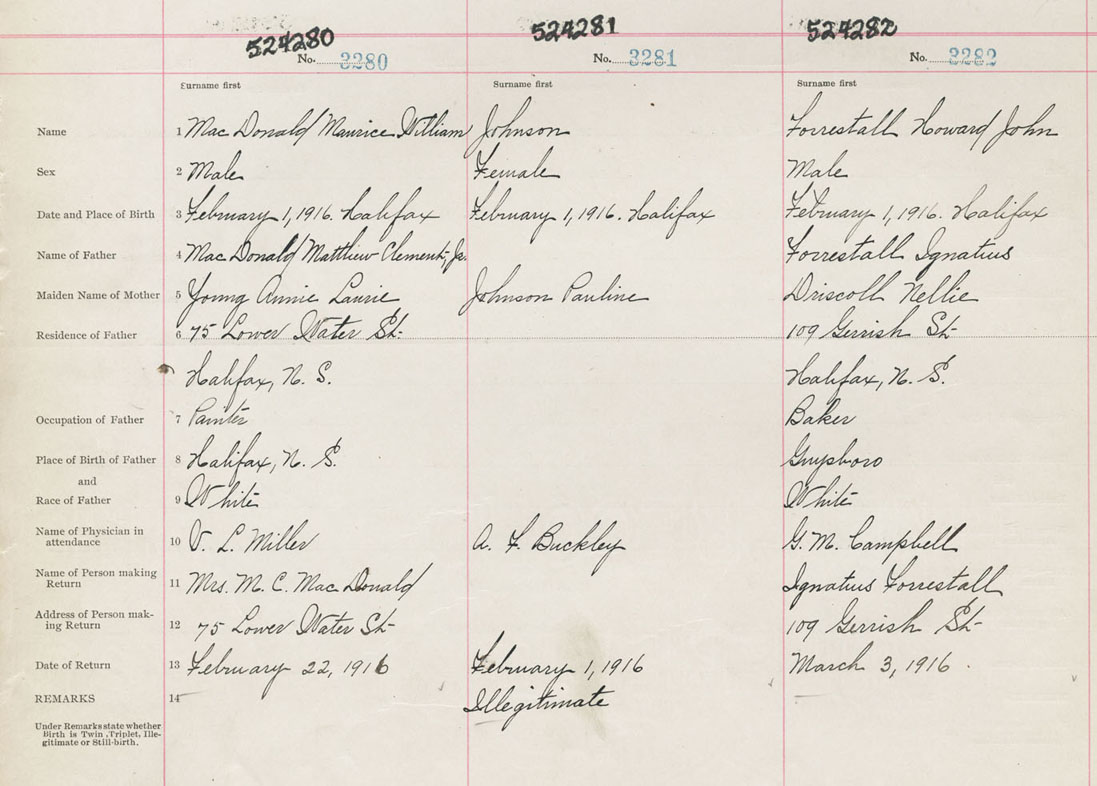 524280 524281 524282
No. 3280 No. 3281 No. 3282
Surname first Surname first Surname first
Name 1 Mac Donald Maurice William Johnson Forrestall Howard John
Sex 2 Male Female Male
Date and Place of Birth 3 February 1, 1916. Halifax February 1, 1916. Halifax February 1, 1916. Halifax
Name of Father 4 Mac Donald Matthew Clement, Jr. Forrestall Ignatius
Maiden Name of Mother 5 Young Annie Laurie Johnson Pauline Driscoll Nellie
Residence of Father 6 75 Lower Water St. 109 Gerrish St.
Halifax, N. S. Halifax, N. S.
Occupation of Father 7 Painter Baker
Place of Birth of Father 8 Halifax, N. S. Guysboro
and
Race of Father 9 White White
Name of Physician in
attendance 10 V. L. Miller A. F. Buckley G. M. Campbell
Name of Person making
Return 11 Mrs. M. C. Mac Donald Ignatius Forrestall
Address of Person mak-
ing Return 12 75 Lower Water St. 109 Gerrish St.
Date of Return 13 February 22, 1916 February 1, 1916 March 3, 1916.
REMARKS 14 Illegitimate
Under Remarks state whether
Birth is Twin, Triplet, Ille-
gitimate or Still-birth.